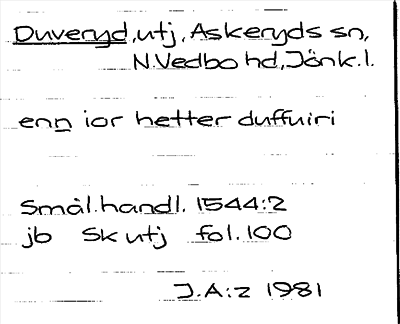 Duveryd, utj, Askeryds sn,
N.Vedbo hd, Jönk.l.
enn ior hetter duffuiri
Smål.handl. 1544:2
jb Sk utj fol.100
J.A:z 1981